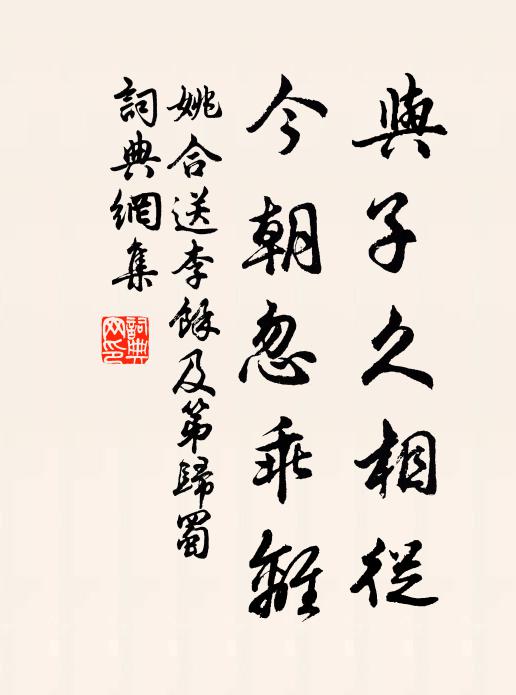 與子久相從
今朝忽乖離
姚合送李餘及第歸蜀
詞典網集
詞典网印